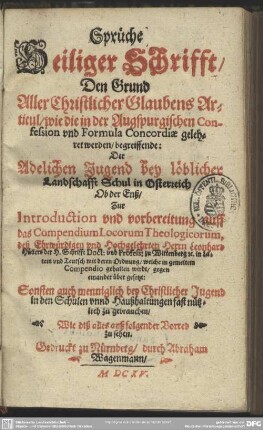 Sprüche
Heiliger Schrifft/
Den Grund
Aller Christlicher Glaubens Ar-
ticul/ wie die in der Augspurgischen Con-
fession vnd Formula Concordiæ geleh-
ret werden/ begreiffende:
Der
Adelichen Jugend bey löblicher
Landschafft Schul in Osterreich
Ob der Enß/
Zur
Introduction vnd vorbereitung auff
das Compendium Locorum Theologicorum,
deß Ehrwürdigen vnd Hochgelehrten Herrn Leonhart
Hütters der H. Schrifft Doct: vnd Professor zu Wittenberg ꝛc. in La-
tein vnd Teutsch mit deren Ordnung/ welche in gemeltem
Compendio gehalten wird/ gegen
einander über gesetzt:
Sonsten auch menniglich bey Christlicher Jugend
in den Schulen vnnd Haußhaltungen fast nütz-
lich zu gebrauchen/
Wie diß alles auß folgender Vorred
zu sehen.
Gedruckt zu Nürnberg/ durch Abraham
Wagenmann/
M DC XV.
DFG